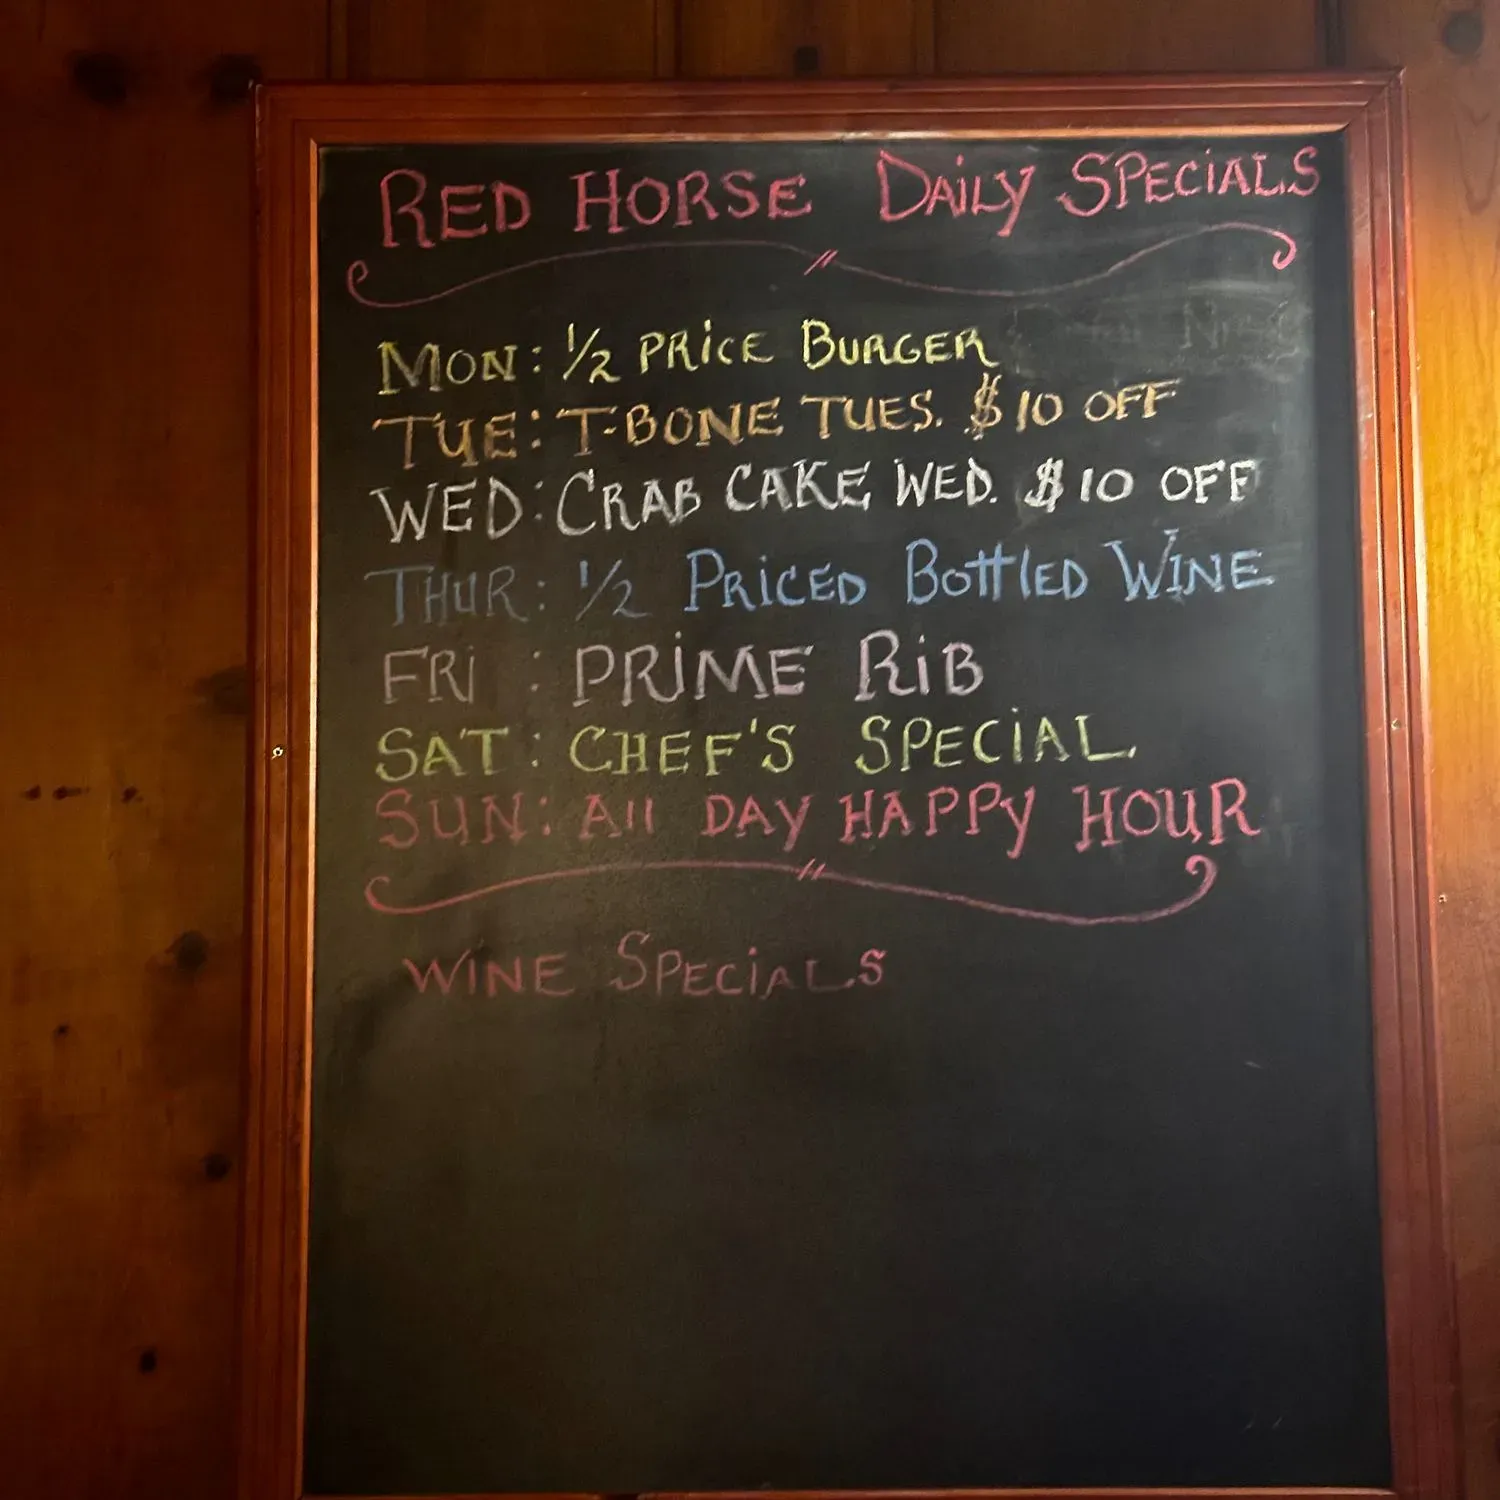 RED HORSE DAiLY SPECiALS
MON: 1/2 PRiCE BURGER
TUE: T-BONE TUES. $10 OFF
WED: CRAB CAKE WED. $10 OFF
THUR: 1/2 PRiCED BOttlED WiNE
FRi : PRiME RiB
SAT: CHEF'S SPECiAL.
SUN: All DAY HAPPY HOUR
WiNE SPECiALS